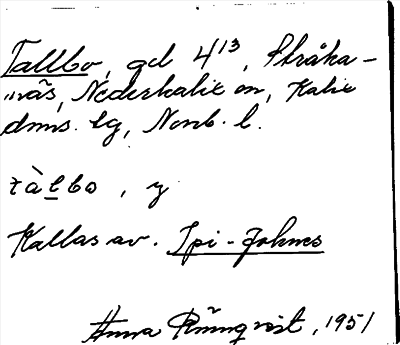 Tallbo, gd 4¹³, Stråka-
näs, Nederkalix sn, Kalix
dms. lg, Norrb. l.
tàlbo, y
Kallas av. Ipi-Johnes
Anna Rönnqvist, 1951